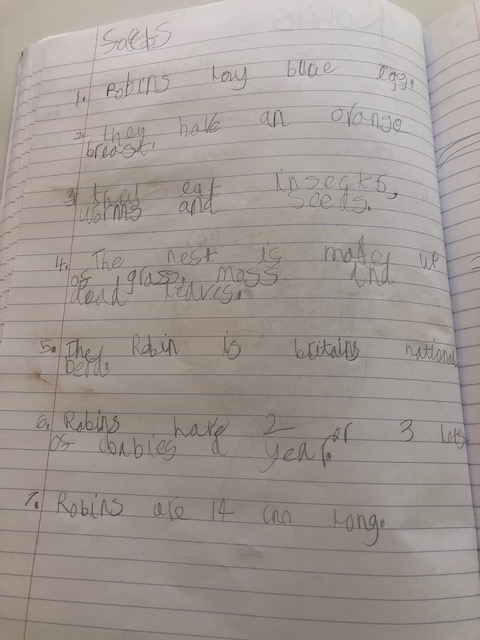 Facts
1. Robins lay blue egg.
2. they have an orange
breast.
3. they eat insects,
worms and seeds.
4. The nest is made up
of grass, moss and
dead leaves.
5. The Robin is britains national
berd.
6. Robins have 2 or 3 lots
of babies a year.
7. Robins are 14 cm long.